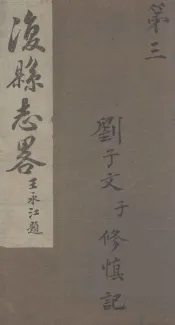 第三
劉子文子修慎記
復縣志畧
王永江題